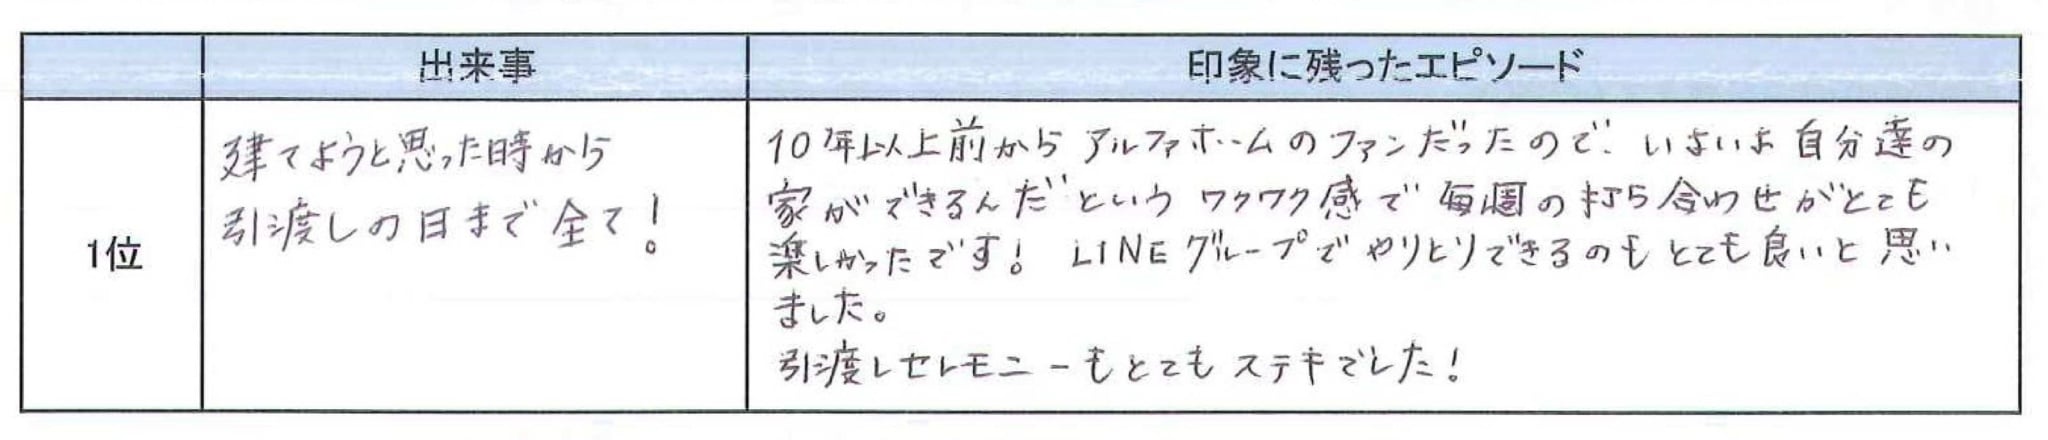 出来事
印象に残ったエピソード
1位
建てようと思った時から
引渡しの日まで全て！
10年以上前からアルファホームのファンだったので、いよいよ自分達の
家ができるんだ"というワクワク感で毎週の打ち合わせがとても
楽しかったです！ LINEグループでやりとりできるのもとても良いと思い
ました。
引渡しセレモニーもとてもステキでした！